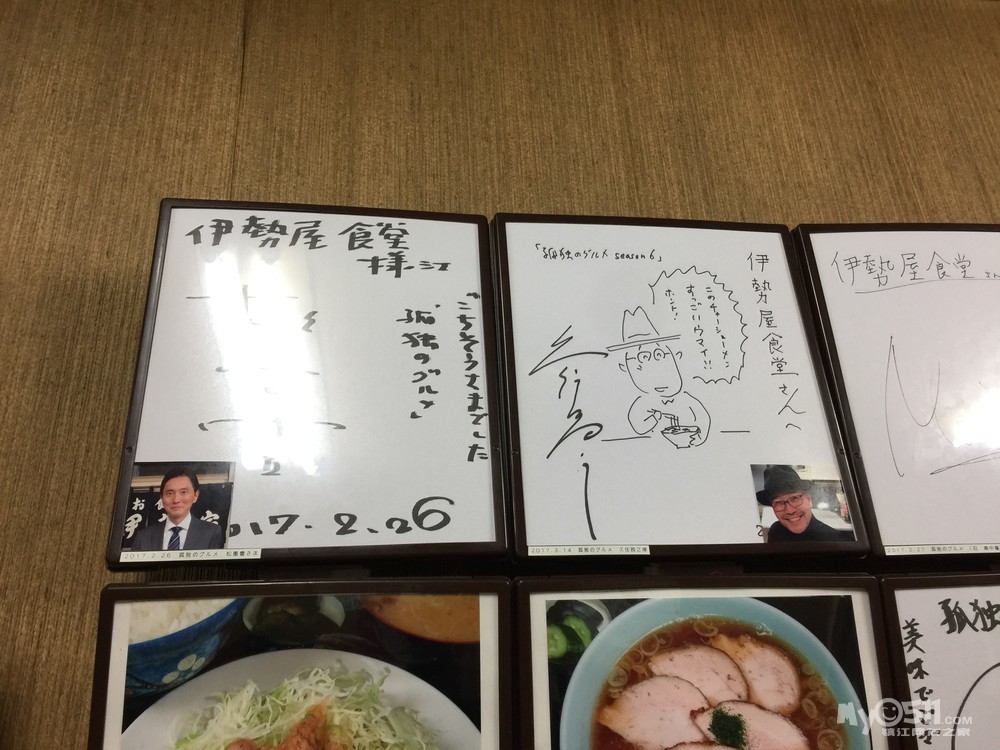 伊勢屋食堂
様江
"ごちそうさまでした
孤独のグルメ"
2017.2.26
2017.2.26 孤独のグルメ 松重豊さま
「孤独のグルメ season6」
このチャーシューメン
すっごいウマイ!!
ホント!
伊勢屋食堂さんへ
2017.2.14 孤独のグルメ 久住昌之様
伊勢屋食堂さん
孤独
美味で
MyO511.COM
镇江网友之家